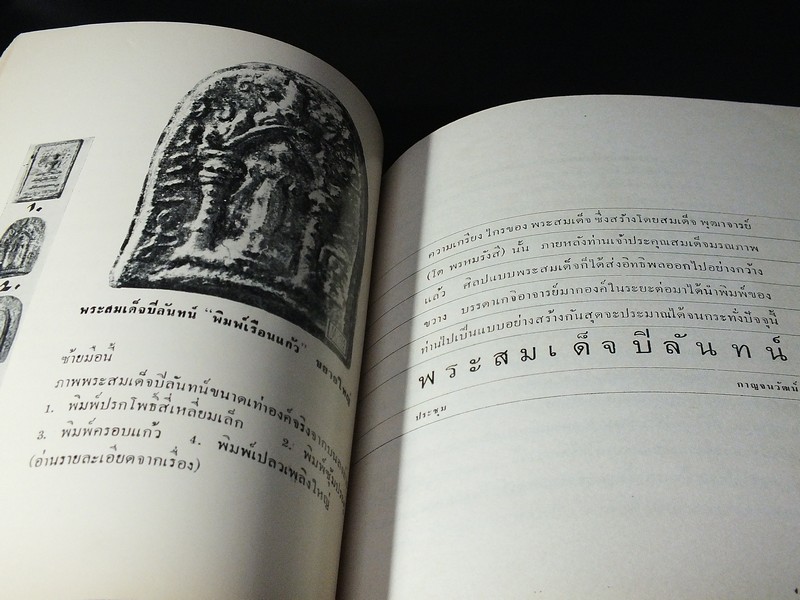 1.
2.
พระสมเด็จปีลันทน์ "พิมพ์เรือนแก้ว" ขยายใหญ่
ซ้ายมือนี้
ภาพพระสมเด็จปีลันทน์ขนาดเท่าองค์จริงจากบน
1. พิมพ์ปรกโพธิ์สี่เหลี่ยมเล็ก 2. พิมพ์ซุ้ม
3. พิมพ์ครอบแก้ว 4. พิมพ์เปลวเพลิงใหญ่
(อ่านรายละเอียดจากเรื่อง)
ความเกรียงไกรของ พระสมเด็จ ซึ่งสร้างโดยสมเด็จ พุฒาจารย์
(โต พรหมรังสี) นั้น ภายหลังท่านเจ้าประคุณสมเด็จมรณภาพ
แล้ว ศิลปแบบพระสมเด็จก็ได้ส่งอิทธิพลออกไปอย่างกว้าง
ขวาง บรรดาเกจิอาจารย์มากองค์ในระยะต่อมาได้นำพิมพ์ของ
ท่านไปเป็นแบบอย่างสร้างกันสุดจะประมาณได้จนกระทั่งปัจจุนี้
พระสมเด็จปีลันทน์
ประชุม กาญจนวัฒน์